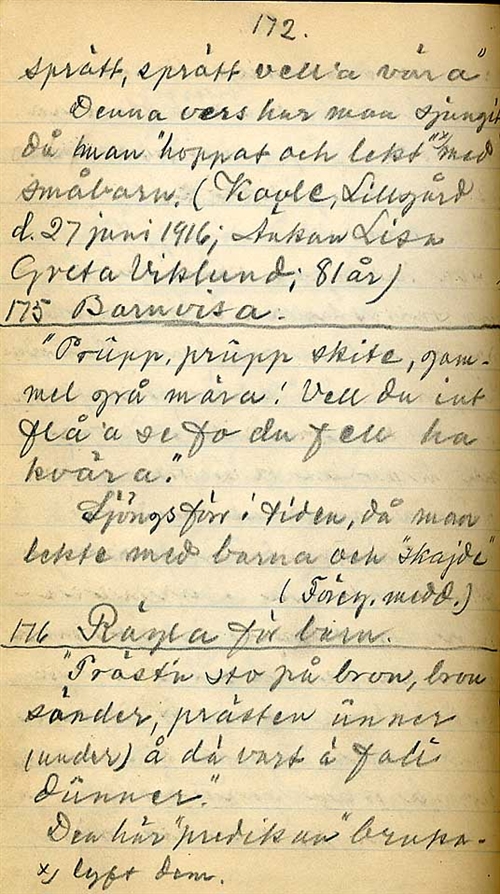 172.
sprátt, sprátt vell'a våra"
Denna vers har man sjungit
då man "hoppat och lekt" x) med
småbarn. (Lillgård
d. 27 juni 1916; Änkan Lisa
Greta Viklund; 81 år)
175 Barnvisa.
"Prüpp, prüpp skite, gam-
mel grå mära! Vell du int
flå'a se fo du fell ha
kvära."
Sjöngs förr i tiden, då man
lekte med barna och "skajde"
(Föreg. medd.)
176 Rägla för barn.
"Präst'n sto på bron, bron
sönder, prästen ünner
(under) å dä vart å fali
dünner."
Den här "predikan" bruka-
x) lyft dem.